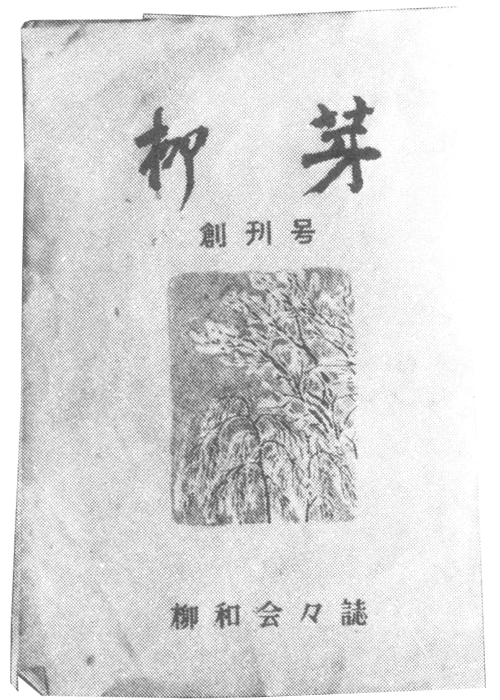 柳芽
創刊号
柳和会々誌